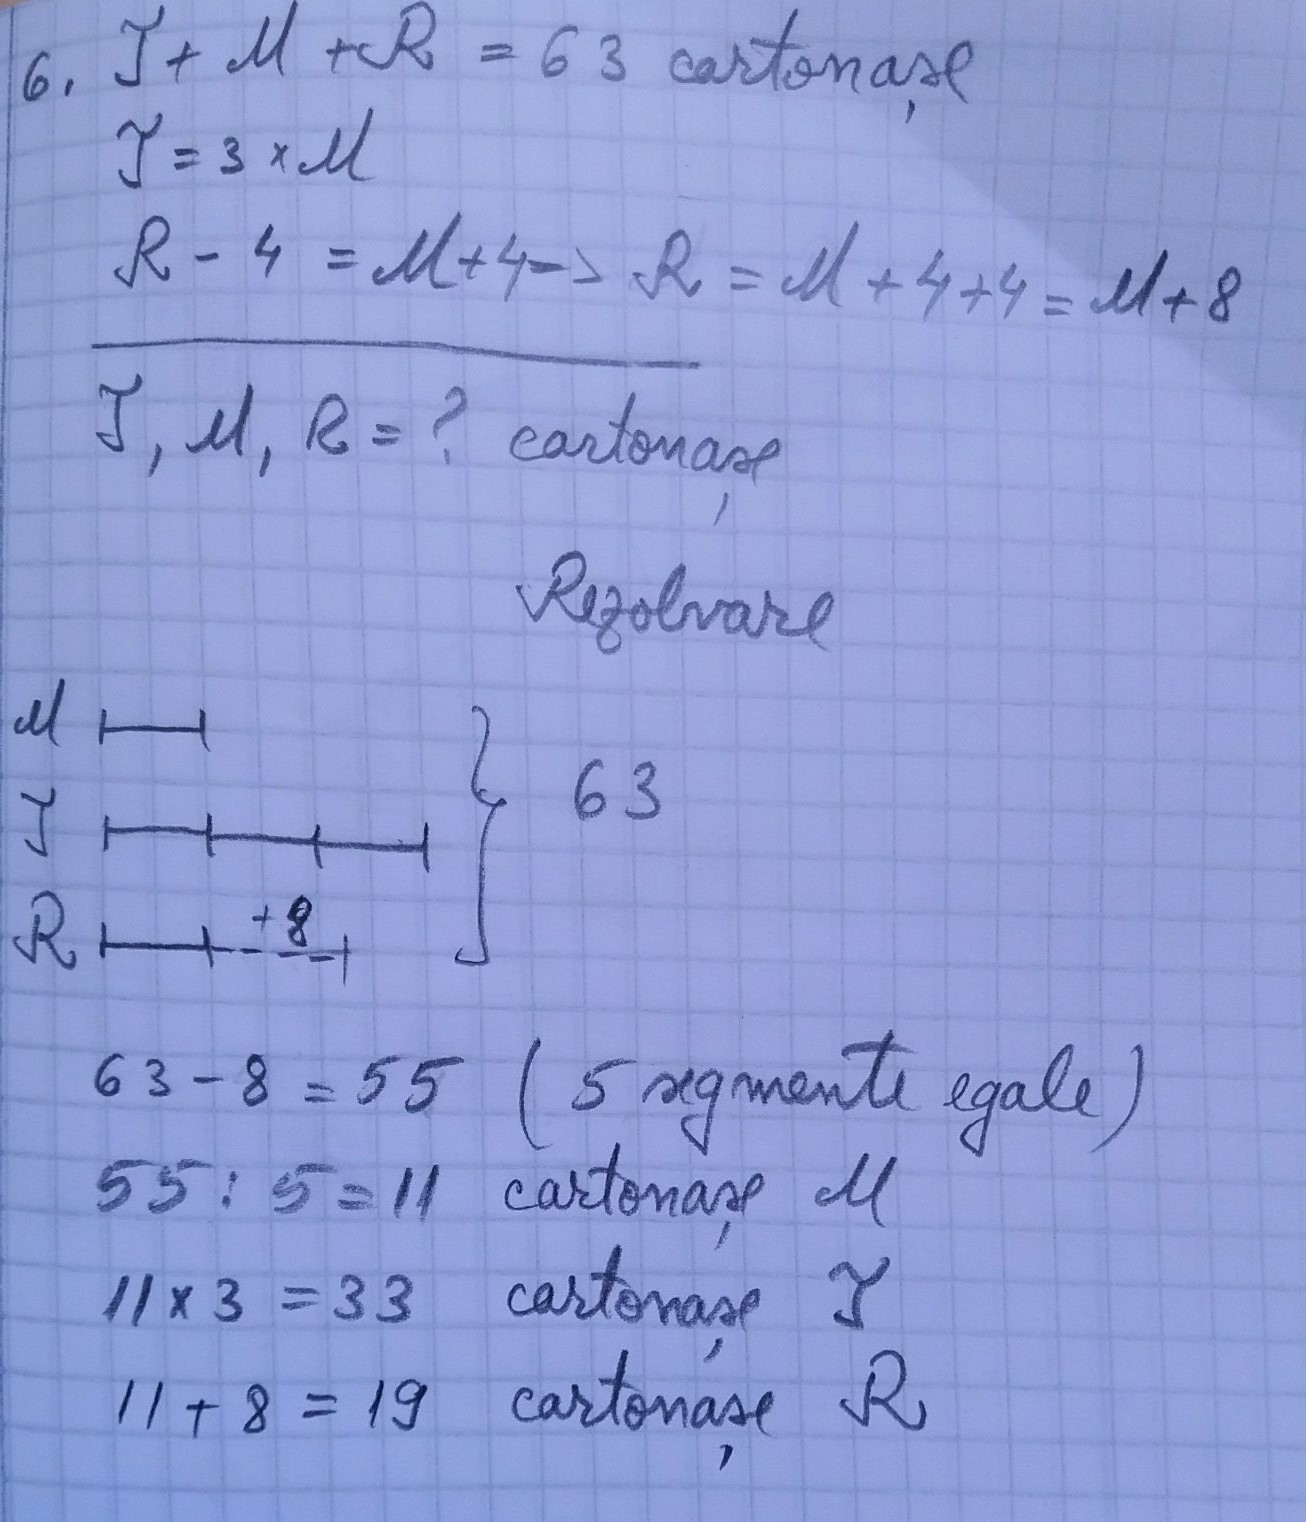 6. I + M + R = 63 cartonașe
I = 3 × M
R - 4 = M + 4 -> R = M + 4 + 4 = M + 8
I, M, R = ? cartonașe
Rezolvare
M
I
R +8
63
63 - 8 = 55 (5 segmente egale)
55 : 5 = 11 cartonașe M
11 × 3 = 33 cartonașe I
11 + 8 = 19 cartonașe R